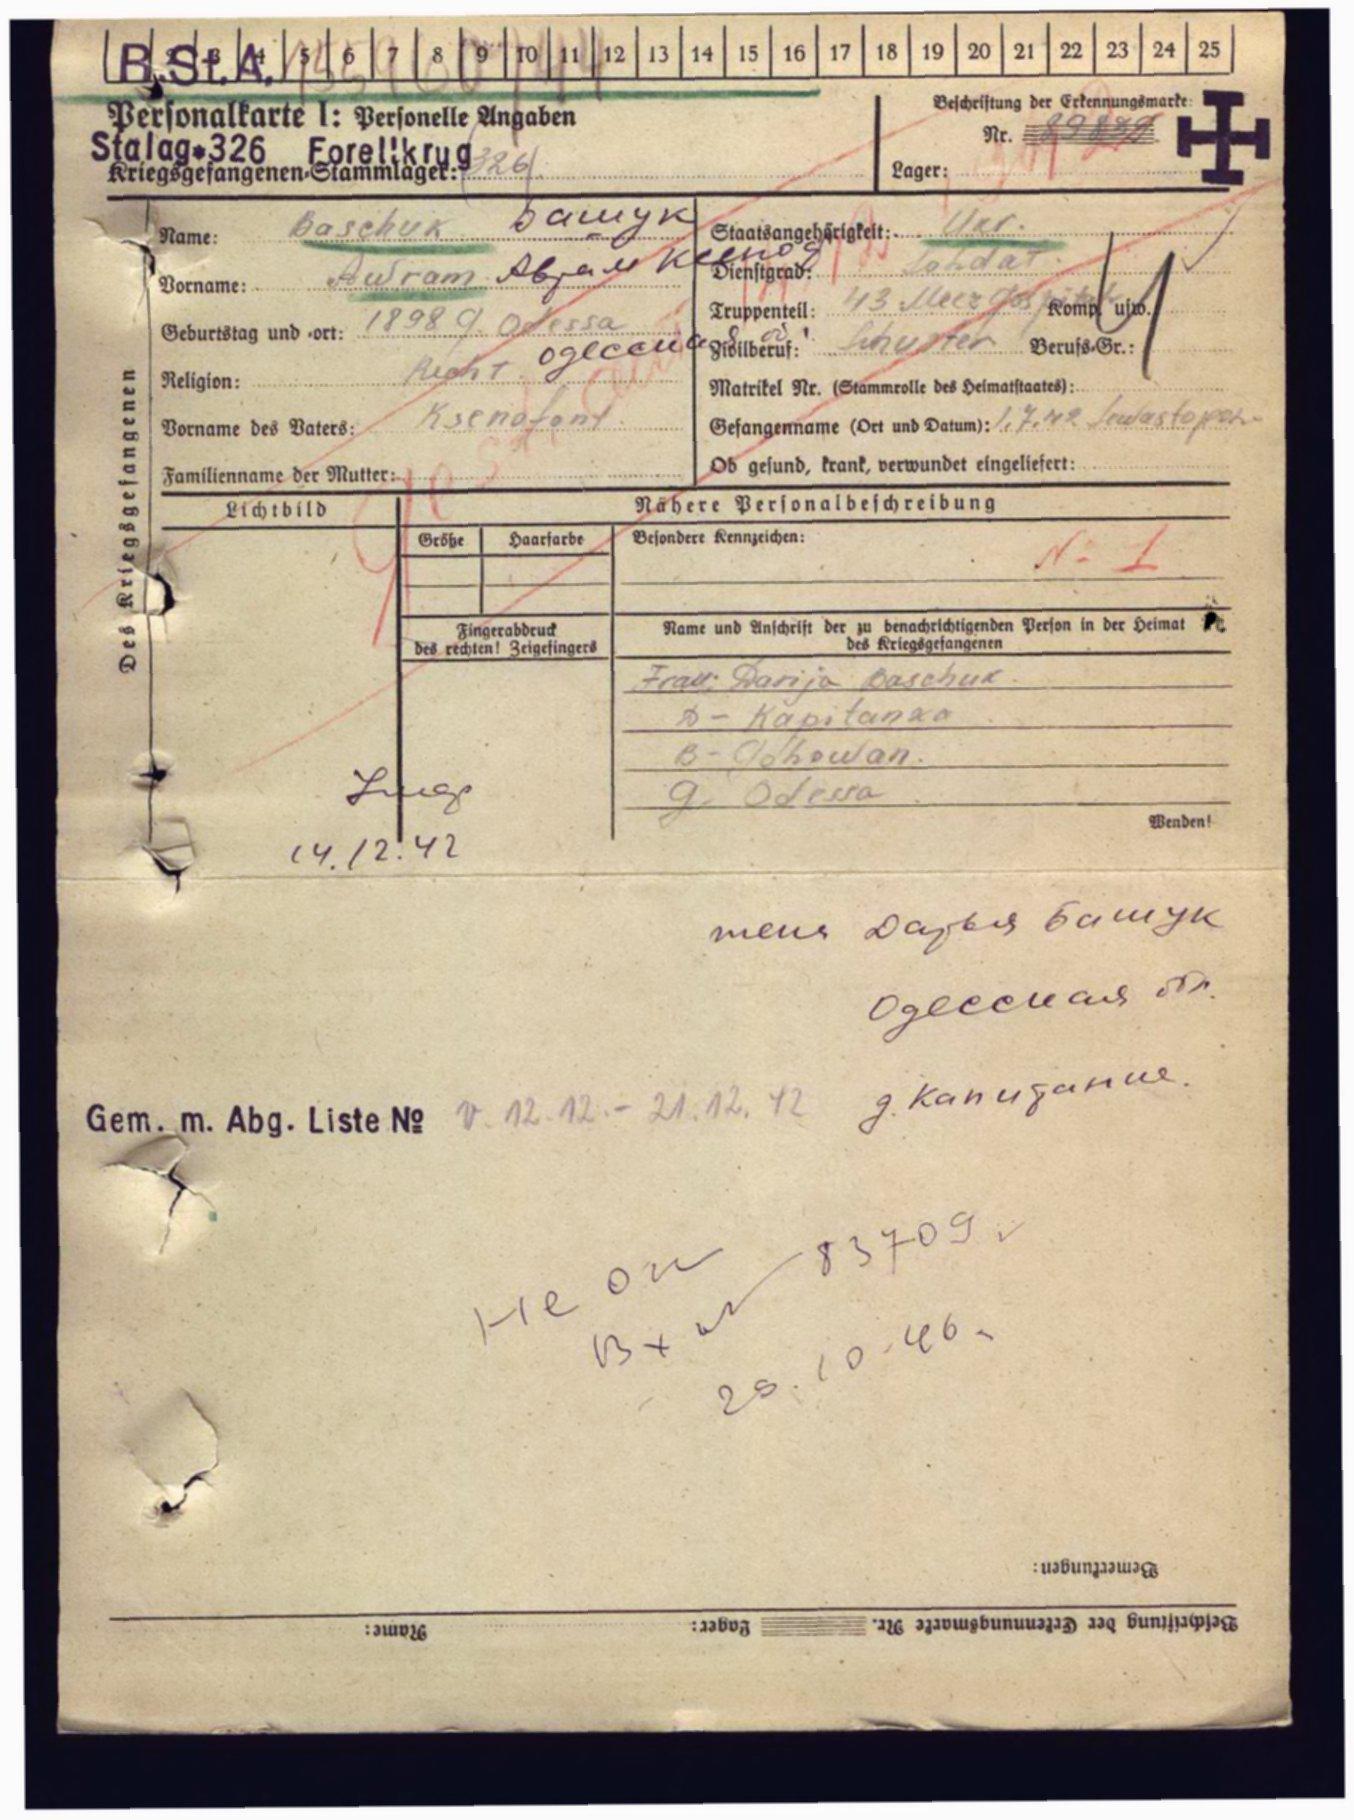 B.St.A. 2 3 4 5 6 7 8 9 10 11 12 13 14 15 16 17 18 19 20 21 22 23 24 25
Personalkarte I: Personelle Angaben
Beschriftung der Erkennungsmarke:
Nr.
Stalag 326 Forellkrug
Kriegsgefangenen-Stammlager: (326)
Lager:
Des Kriegsgefangenen
Name: Baschuk Башук
Vorname: Awram Аврам Ксеноф
Geburtstag und -ort: 1898 g. Odessa
Одесская об.
Religion:
Vorname des Vaters: Ksenofont
Familienname der Mutter:
Staatsangehörigkeit: Ukr.
Dienstgrad: Soldat
Truppenteil: 43 Komp. usw.
Zivilberuf: Schuster Berufs-Gr.:
Matrikel Nr. (Stammrolle des Heimatstaates):
Gefangennahme (Ort und Datum): 1.7.42 Sewastopol
Ob gesund, krank, verwundet eingeliefert:
Lichtbild
Nähere Personalbeschreibung
Größe Haarfarbe Besondere Kennzeichen:
N- 1
Fingerabdruck
des rechten! Zeigefingers
Name und Anschrift der zu benachrichtigenden Person in der Heimat
des Kriegsgefangenen
Frau: Darija Baschuk
D- Kapitanka
G. Odessa
Wenden!
14.12.42
жена Дарья Башук
Одесская обл.
д. Капитанка.
Gem. m. Abg. Liste № v. 12.12.- 21.12.42
Не он
Вх 83709
10.46
Bemerkungen:
Beschriftung der Erkennungsmarke Nr. Lager: Name: